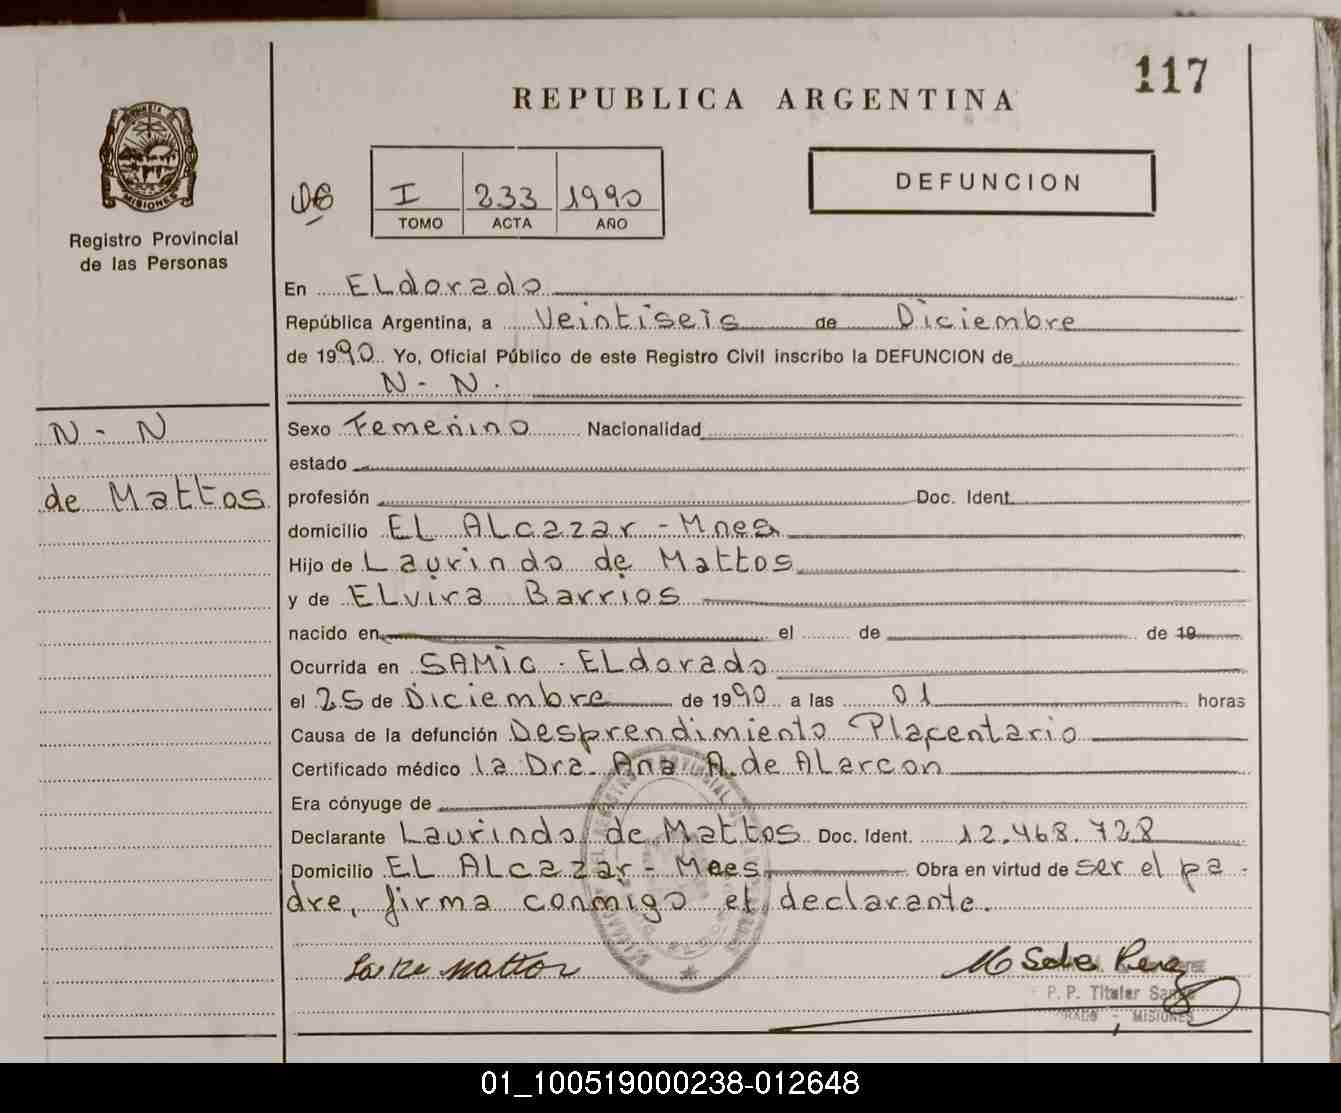 117
REPUBLICA ARGENTINA
MISIONES
Registro Provincial
de las Personas
I 233 1990
TOMO ACTA AÑO
DEFUNCION
En ELdorado
República Argentina, a Veintiseis de Diciembre
de 1990 Yo, Oficial Público de este Registro Civil inscribo la DEFUNCION de
N - N.
N - N
de Mattos
Sexo Femenino Nacionalidad
estado
profesión Doc. Ident.
domicilio EL ALcazar - Mnes
Hijo de Laurindo de Mattos
y de ELvira Barrios
nacido en el de de 19
Ocurrida en SAMIC - ELdorado
el 25 de Diciembre de 1990 a las 01 horas
Causa de la defunción Desprendimiento Placentario
Certificado médico la Dra. Ana A. de ALarcon
Era cónyuge de
Declarante Laurindo de Mattos Doc. Ident. 12.468.728
Domicilio EL ALcazar - Mnes Obra en virtud de ser el pa-
dre, firma conmigo el declarante.
Mattos
P. P. Titular
MISIONES
01_100519000238-012648